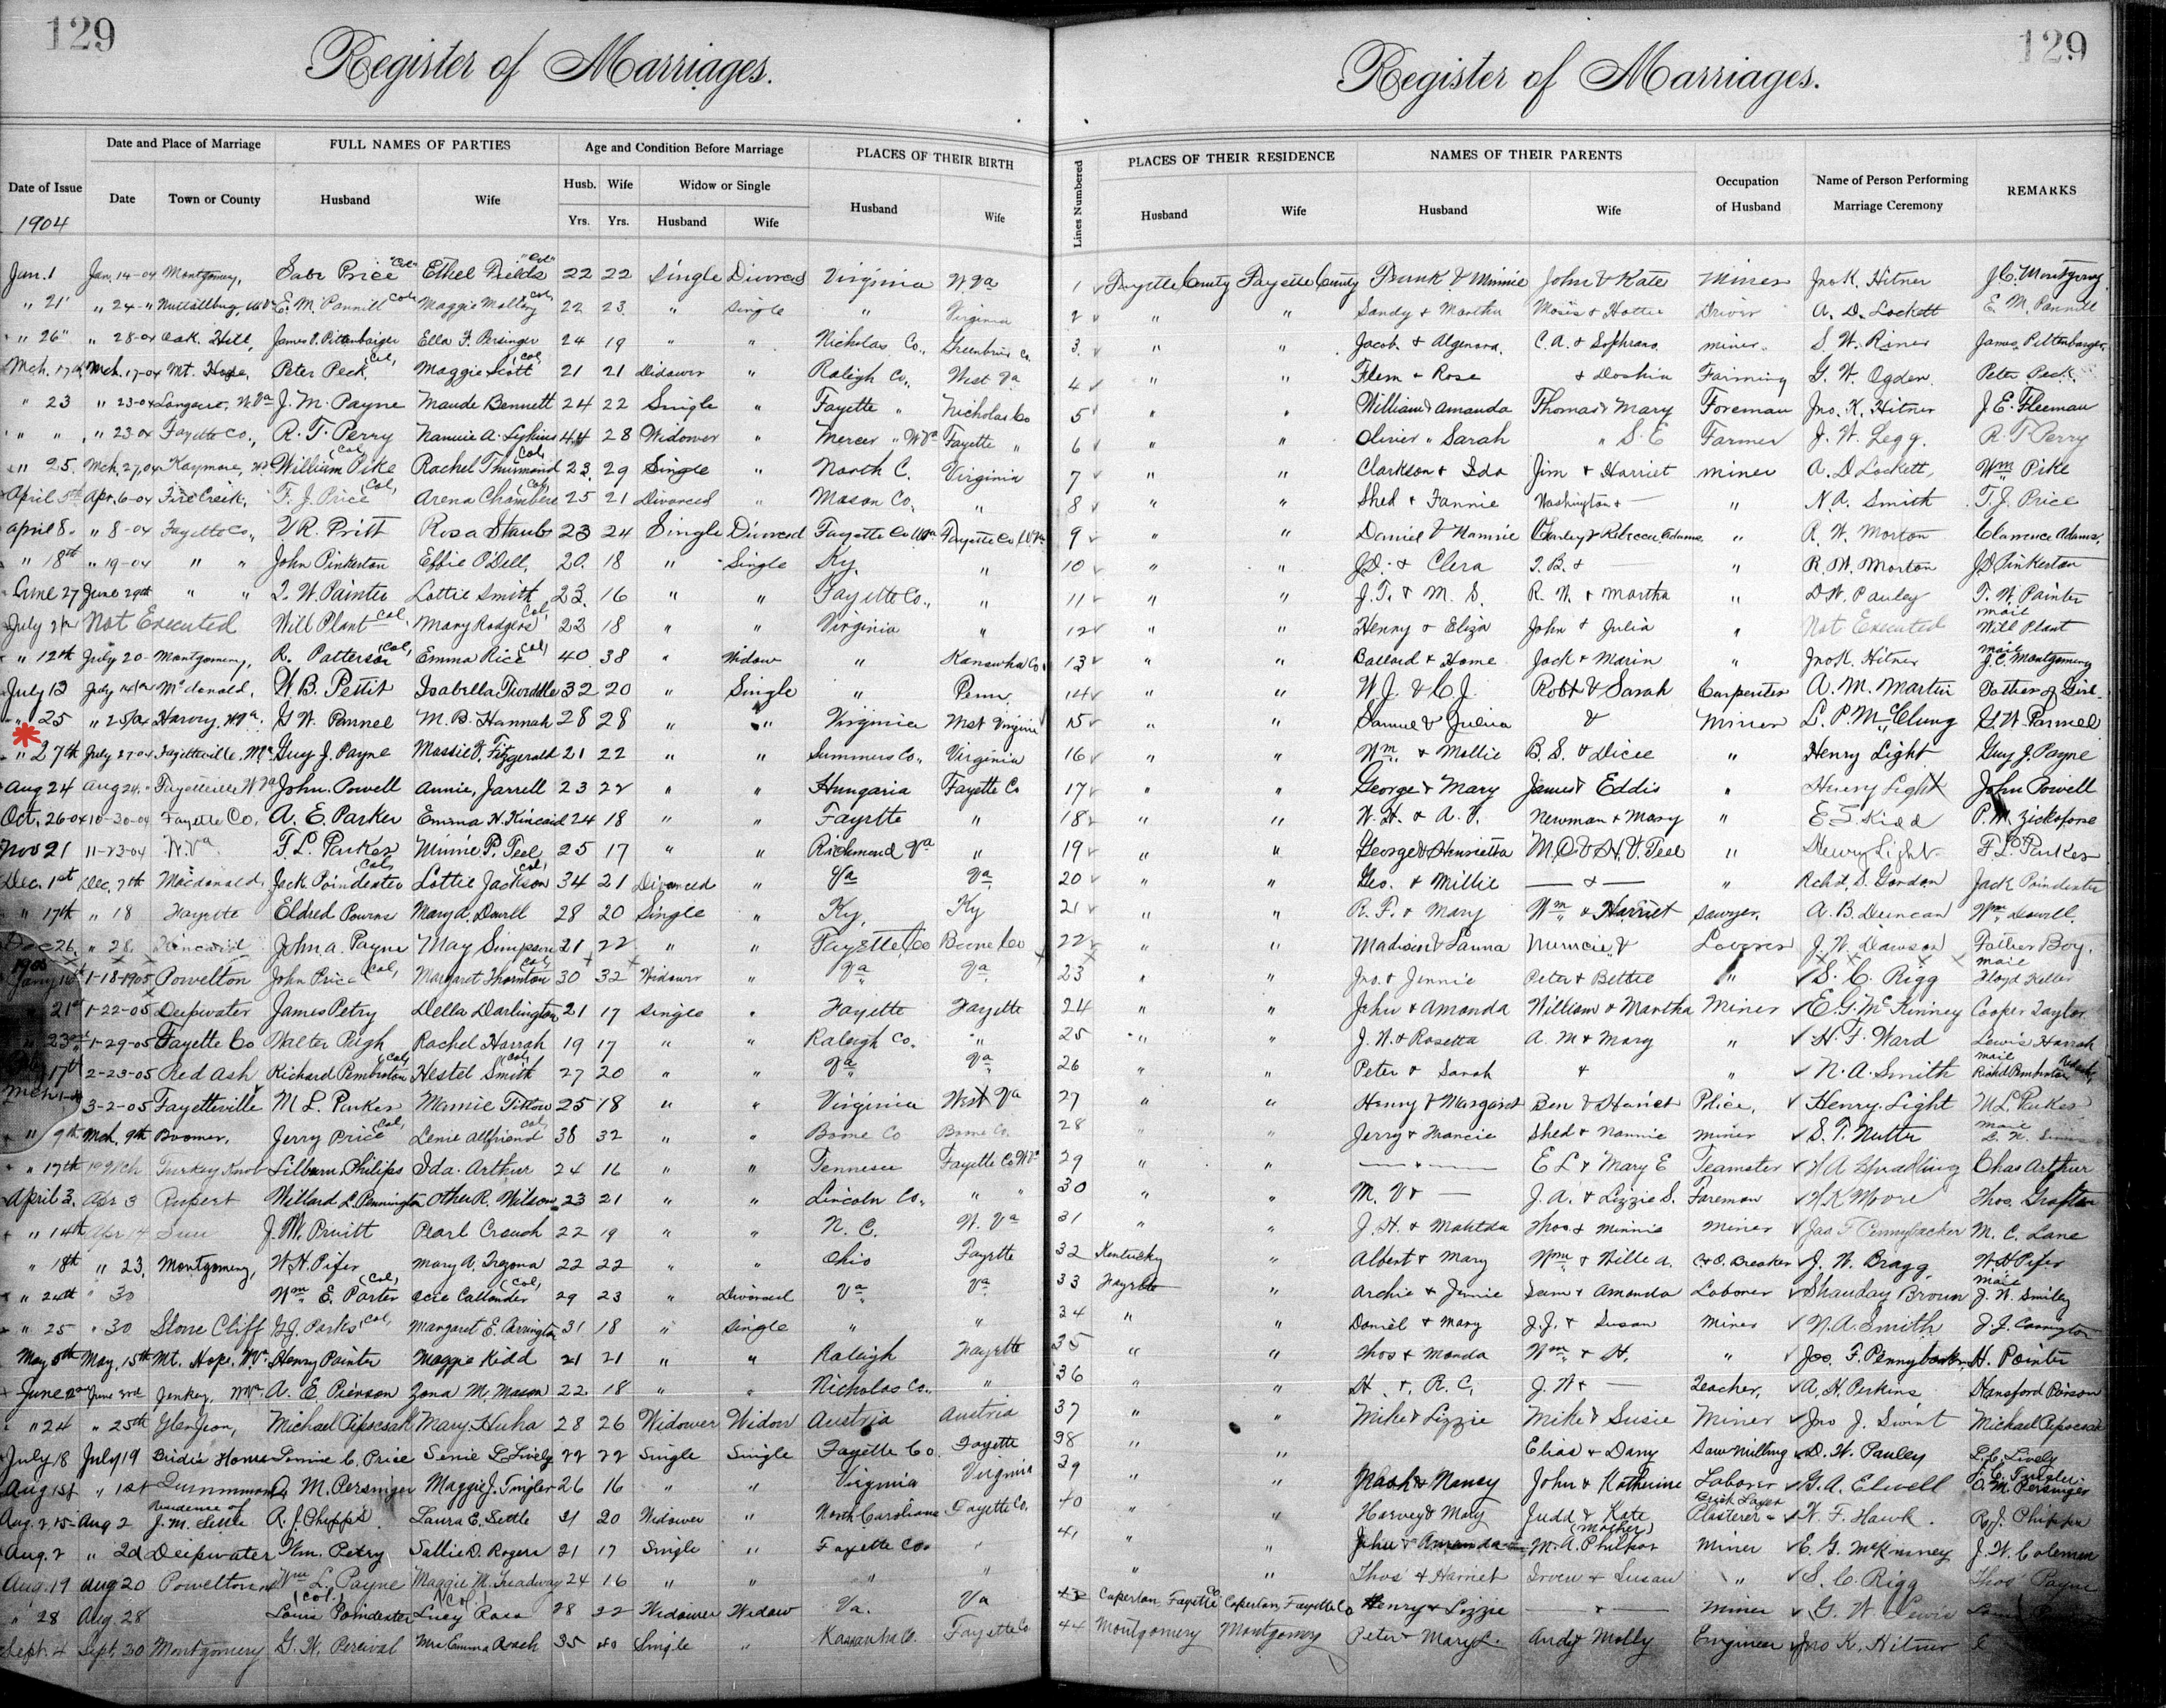 129
Register of Marriages.
129
Register of Marriages.
Date of Issue
Date and Place of Marriage
FULL NAMES OF PARTIES
Age and Condition Before Marriage
PLACES OF THEIR BIRTH
Date
Town or County
Husband
Wife
Husb. Wife Widow or Single
Yrs. Yrs. Husband Wife
Husband
Wife
Lines Numbered
PLACES OF THEIR RESIDENCE
NAMES OF THEIR PARENTS
Occupation of Husband
Name of Person Performing Marriage Ceremony
REMARKS
Husband Wife Husband Wife
1904
Jan. 1 Jan. 14-04 Montgomery, Price "Col" Ethel Fields "Col" 22 22 Single Divorced Virginia W Va 1 Fayette County Fayette County Frank & Minnie John & Kate Miner Jno K. Hitner J.C. Montgomery
" 21 " 24 - " Nuttallburg, W Va E. M. Pannill Col Maggie Col 22 23 " Single " Virginia 2 " " Sandy & Martha Moses & Hattie Driver A. D. Lockett E. M. Pannill
" 26 " 28-04 Oak Hill, Ella F. Persinger 24 19 " " Nicholas Co., Greenbrier Co. 3 " " Jacob & C. A. & miner S. W. Riner James
Mch. 17 Mch. 17-04 Mt. Hope, Peter Peck Col, Maggie Scott Col, 21 21 Widower " Raleigh Co., West Va 4 " " Flem & Rose & Doshia Farming G. W. Ogden Peter Peck
" 23 " 23-04 W. Va J. M. Payne Maude Bennett 24 22 Single " Fayette " Nicholas Co 5 " " William & Amanda Thomas & Mary Foreman Jno. K. Hitner J. E. Fleeman
" " " 23-04 Fayette Co., R. T. Perry Nannie A. 44 28 Widower " Mercer " W Va Fayette " 6 " " Oliver " Sarah " S. E Farmer J. W. Legg. R. T Perry
" 25. Mch. 27, 04 Kaymore, William Pike Col, Rachel Thurmond Col, 23 29 Single " North C. Virginia 7 " " Clarkson & Ida Jim & Harriet miner A. D Lockett, Wm Pike
April 5th Apr. 6-04 Fire Creek, T. J. Price Col, Arena Chambers Col, 25 21 Divorced " Mason Co, " 8 " " Shed & Fannie Washington & — " N. A. Smith T. J. Price
April 8. " 8-04 Fayette Co., V R. Pritt Rosa Staubs 23 24 Single Divorced Fayette Co W Va Fayette Co W Va 9 " " Daniel & Nannie Charley & Rebecca Adams " R. W. Morton Clarence Adams,
" 18th " 19-04 " " John Pinkerton Effie O'Dell, 20 18 " Single Ky. " 10 " " J D. & Clera T. B. & — " R. W. Morton J D Pinkerton
June 27 June 29th " " T. W. Painter Lottie Smith 23. 16 " " Fayette Co., " 11 " " J. T. & M. S. R. W. & Martha " D W. Pauley T. W. Painter
July Not Executed Will Plant Col Mary Rodgers Col, 22 18 " " Virginia " 12 " " Henry & Eliza John & Julia " Not Executed mail Will Plant
" 12th July 20 Montgomery, R. Patterson Col, Emma Rice Col, 40 38 " Widow " Kanawha Co. 13 " " Ballard & Home Jack & Marin " Jno K. Hitner mail J. C. Montgomery
July 13 July McDonald, W. B. Pettit Isabella 32 20 " Single " Penn 14 " " W. J. & C. J. Robt & Sarah Carpenter A. M. Martin Father of Girl
" 25 " 25/04 Harvey, W Va. G W. Pannel M. B. Hannah 28 28 " " Virginia West Virginia 15 " " Samuel & Julina & Miner L. P. McClung G. W. Pannel
" 27th July 27-04 Fayetteville, W Va Guy J. Payne Fitzgerald 21 22 " " Summers Co., Virginia 16 " " Wm & Mollie B. S. & Dicee " Henry Light Guy J. Payne
Aug 24 Aug 24. " Fayetteville W Va John Powell Annie, Jarrell 23 22 " " Hungaria Fayette Co 17 " " George & Mary James & Eddis " Henry Light John Powell
Oct. 26-04 10-30-04 Fayette Co. A. E. Parker Emma H. Kincaid 24 18 " " Fayette " 18 " " W. H. & A. V. Newman & Mary " E. S. Kidd P. M.
Nov 21 11-23-04 W. Va F. L. Parker Minnie P. Teel 25 17 " " Richmond Va " 19 " " George & Henrietta M. O & H. V. Teel " Henry Light F L Parker
Dec. 1st Dec. 7th Macdonald, Jack Poindexter Col, Lottie Jackson Col, 34 21 Divorced " Va Va 20 " " Geo. & Millie — & — " Richd. S. Gordon Jack Poindexter
" 17th " 18 Fayette Eldred Powns Mary A, Dowell 28 20 Single " Ky, Ky 21 " " R. F. & Mary Wm & Harriet Sawyer, A. B. Duncan Wm Dowell
Dec 26. " 28. Kincaid John A. Payne May Simpson 21 22 " " Fayette Co Boone Co 22 " " Madison & & Laborer J. W. Dawson Father Boy.
1905
Jany 16 1-18-1905 Powelton John Price Col, Margaret Thornton Col, 30 32 Widower " Va Va 23 " " Jno. & Jennie Peter & Bettie " S. C. Rigg mail Floyd Keller
21st 1-22-05 Deepwater James Petry Della Darlington 21 17 Single " Fayette Fayette 24 " " John & Amanda William & Martha Miner E. G. McKinney Cooper Taylor
23rd 1-29-05 Fayette Co Walter Pugh Rachel Harrah 19 17 " " Raleigh Co. " 25 " " J. W. & Rosetta A. M & Mary " H. F. Ward Lewis Harrah
17th 2-23-05 Red Ash Richard Pemberton Col, Hestel Smith Col, 27 20 " " Va Va 26 " " Peter & Sarah & " N. A. Smith mail Richd Pemberton
Mch 3-2-05 Fayetteville M L. Parker Mamie 25 18 " " Virginia West Va 27 " " Henry & Margaret Ben & Hariet Police, Henry Light M L. Parker
" 9th Mch. 9th Boomer, Jerry Price Col, Lenie Allfriend Col, 38 32 " " Boone Co Boone Co. 28 " " Jerry & Francie Shed & Nannie miner S. T. Nutter mail
" 17th 19 Mch Turkey Knob Lilburn Philips Ida Arthur 24 16 " " Tennesee Fayette Co W Va 29 " " — & — E L & Mary E Teamster Chas Arthur
April 3. Apr 3 Rupert Willard L. Pennington R. Wilson 23 21 " " Lincoln Co., " " 30 " " M. V & — J. A. & Lizzie S. Foreman H K Moore Thos. Grafton
" 14th Apr 14 Sun J. W. Pruitt Pearl Crouch 22 19 " " N. C. W. Va 31 " " J. H. & Matilda Thos & Minnie miner Jas F Pennybacker M. C. Lane
" 18th " 23, Montgomery, W. H. Pifer Mary A, Tregona 22 22 " " Ohio Fayette 32 Kentucky " Albert & Mary Wm & Wille A. Breaker J. W. Bragg, W H Pifer
" 24th " 30 Wm E. Porter Col, Callander Col, 29 23 " Divorced Va Va 33 Fayette " Archie & Jennie Sam & Amanda Laborer Shanday Brown mail J. W. Smiley
" 25 " 30 Stone Cliff G J. Parks Col, Margaret E. Carrington 31 18 " Single " " 34 " " Daniel & Mary J. J. & Susan Miner N. A. Smith J. J. Carrington
May May, 15th Mt. Hope, W. Va. Henry Painter Maggie Kidd 21 21 " " Raleigh Fayette 35 " " Thos & Manda Wm & H. " Jas. F. Pennybacker H. Painter
June 2nd June 3rd Jenkey, W Va. A. E Pierson Zona M. Mason 22 18 " " Nicholas Co., " 36 " " H. & R. C. J. W & — Teacher, A. H. Perkins Hansford Pierson
" 24 " 25th Glen Jean, Michael Mary Huha 28 26 Widower Widow Austria Austria 37 " " Mike & Lizzie Mike & Susie Miner Jno J. Swint Michael
July 18 July 19 Birdie Home C. Price L Lively 22 22 Single Single Fayette Co Fayette 38 " " Elias & Dany Saw milling D. W. Pauley L. C. Lively
Aug 1st " 1st M. Persinger Maggie J. Tingler 26 16 " " Virginia Virginia 39 " " Nash & Nancy John & Katherine Laborer G. A. Elwell J. C. Tingler M. Persinger
Aug. 2 15 Aug 2 Residence of J. M. Settle R. J. Phipps Laura E. Settle 21 20 Widower " North Carolina Fayette Co. 40 " " Harvey & Mary Judd & Kate Brick Layer Plasterer & W. F. Hawk. R. J. Phipps
Aug. 2 " 2d Deepwater Wm. Petry Sallie D. Rogers 21 17 Single " Fayette Co. " 41 " " John & Amanda (mother) M. A. Philpot Miner E. G. McKinney J. W. Coleman
Aug. 19 Aug 20 Powelton Wm L. Payne Maggie M. Treadway 24 16 " " " " " " Thos & Harriet Irven & Susan " S. C. Rigg Thos Payne
" 28 Aug. 28 (Col.) Louis Poindexter (Col.) Lucy Ross 28 22 Widower Widow Va. Va 43 Caperton, Fayette Co Caperton, Fayette Co Henry & Lizzie — & — miner G. W. Lewis
Sept. 4 Sept. 30 Montgomery G. W. Percival Mrs Emma Roach 35 40 Single " Kanawha Co. Fayette Co 44 Montgomery Montgomery Peter & Mary L. Andy & Molly Engineer Jno K. Hitner